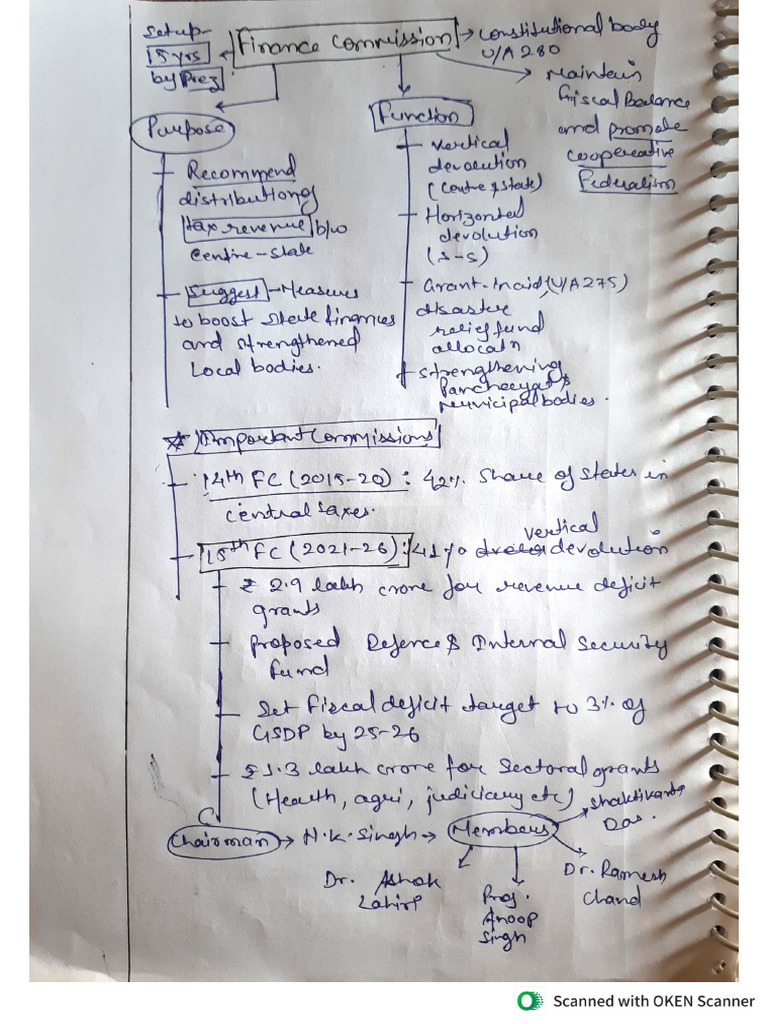 Setup-
15 yrs
by Prez
Finance Commission
Constitutional body
U/A 280
Maintain
fiscal Balance
and promote
cooperative
Federalism
Purpose
Recommend
distribution of
tax revenue b/w
Centre-state
Suggest - Measures
to boost state finances
and strengthened
Local bodies.
Function
vertical
devolution
(Centre & state)
Horizontal
devolution
(S-S)
Grant-in aid (U/A 275)
disaster
relief fund
allocatn
strengthening
Panchayat &
municipal bodies.
Important Commissions
14th FC (2015-20) : 42% share of states in
central taxes.
15th FC (2021-26) : 41% vertical devolution
₹ 2.9 lakh crore for revenue deficit
grants
Proposed Defence & Internal Security
fund
Set Fiscal deficit target to 3% of
GSDP by 25-26
₹ 1.3 lakh crore for Sectoral grants
(Health, agri, judiciary etc)
Chairman
N.K. Singh
Members
Shaktikanta
Das.
Dr. Ashok
Lahiri
Prof.
Anoop
Singh
Dr. Ramesh
Chand
Scanned with OKEN Scanner